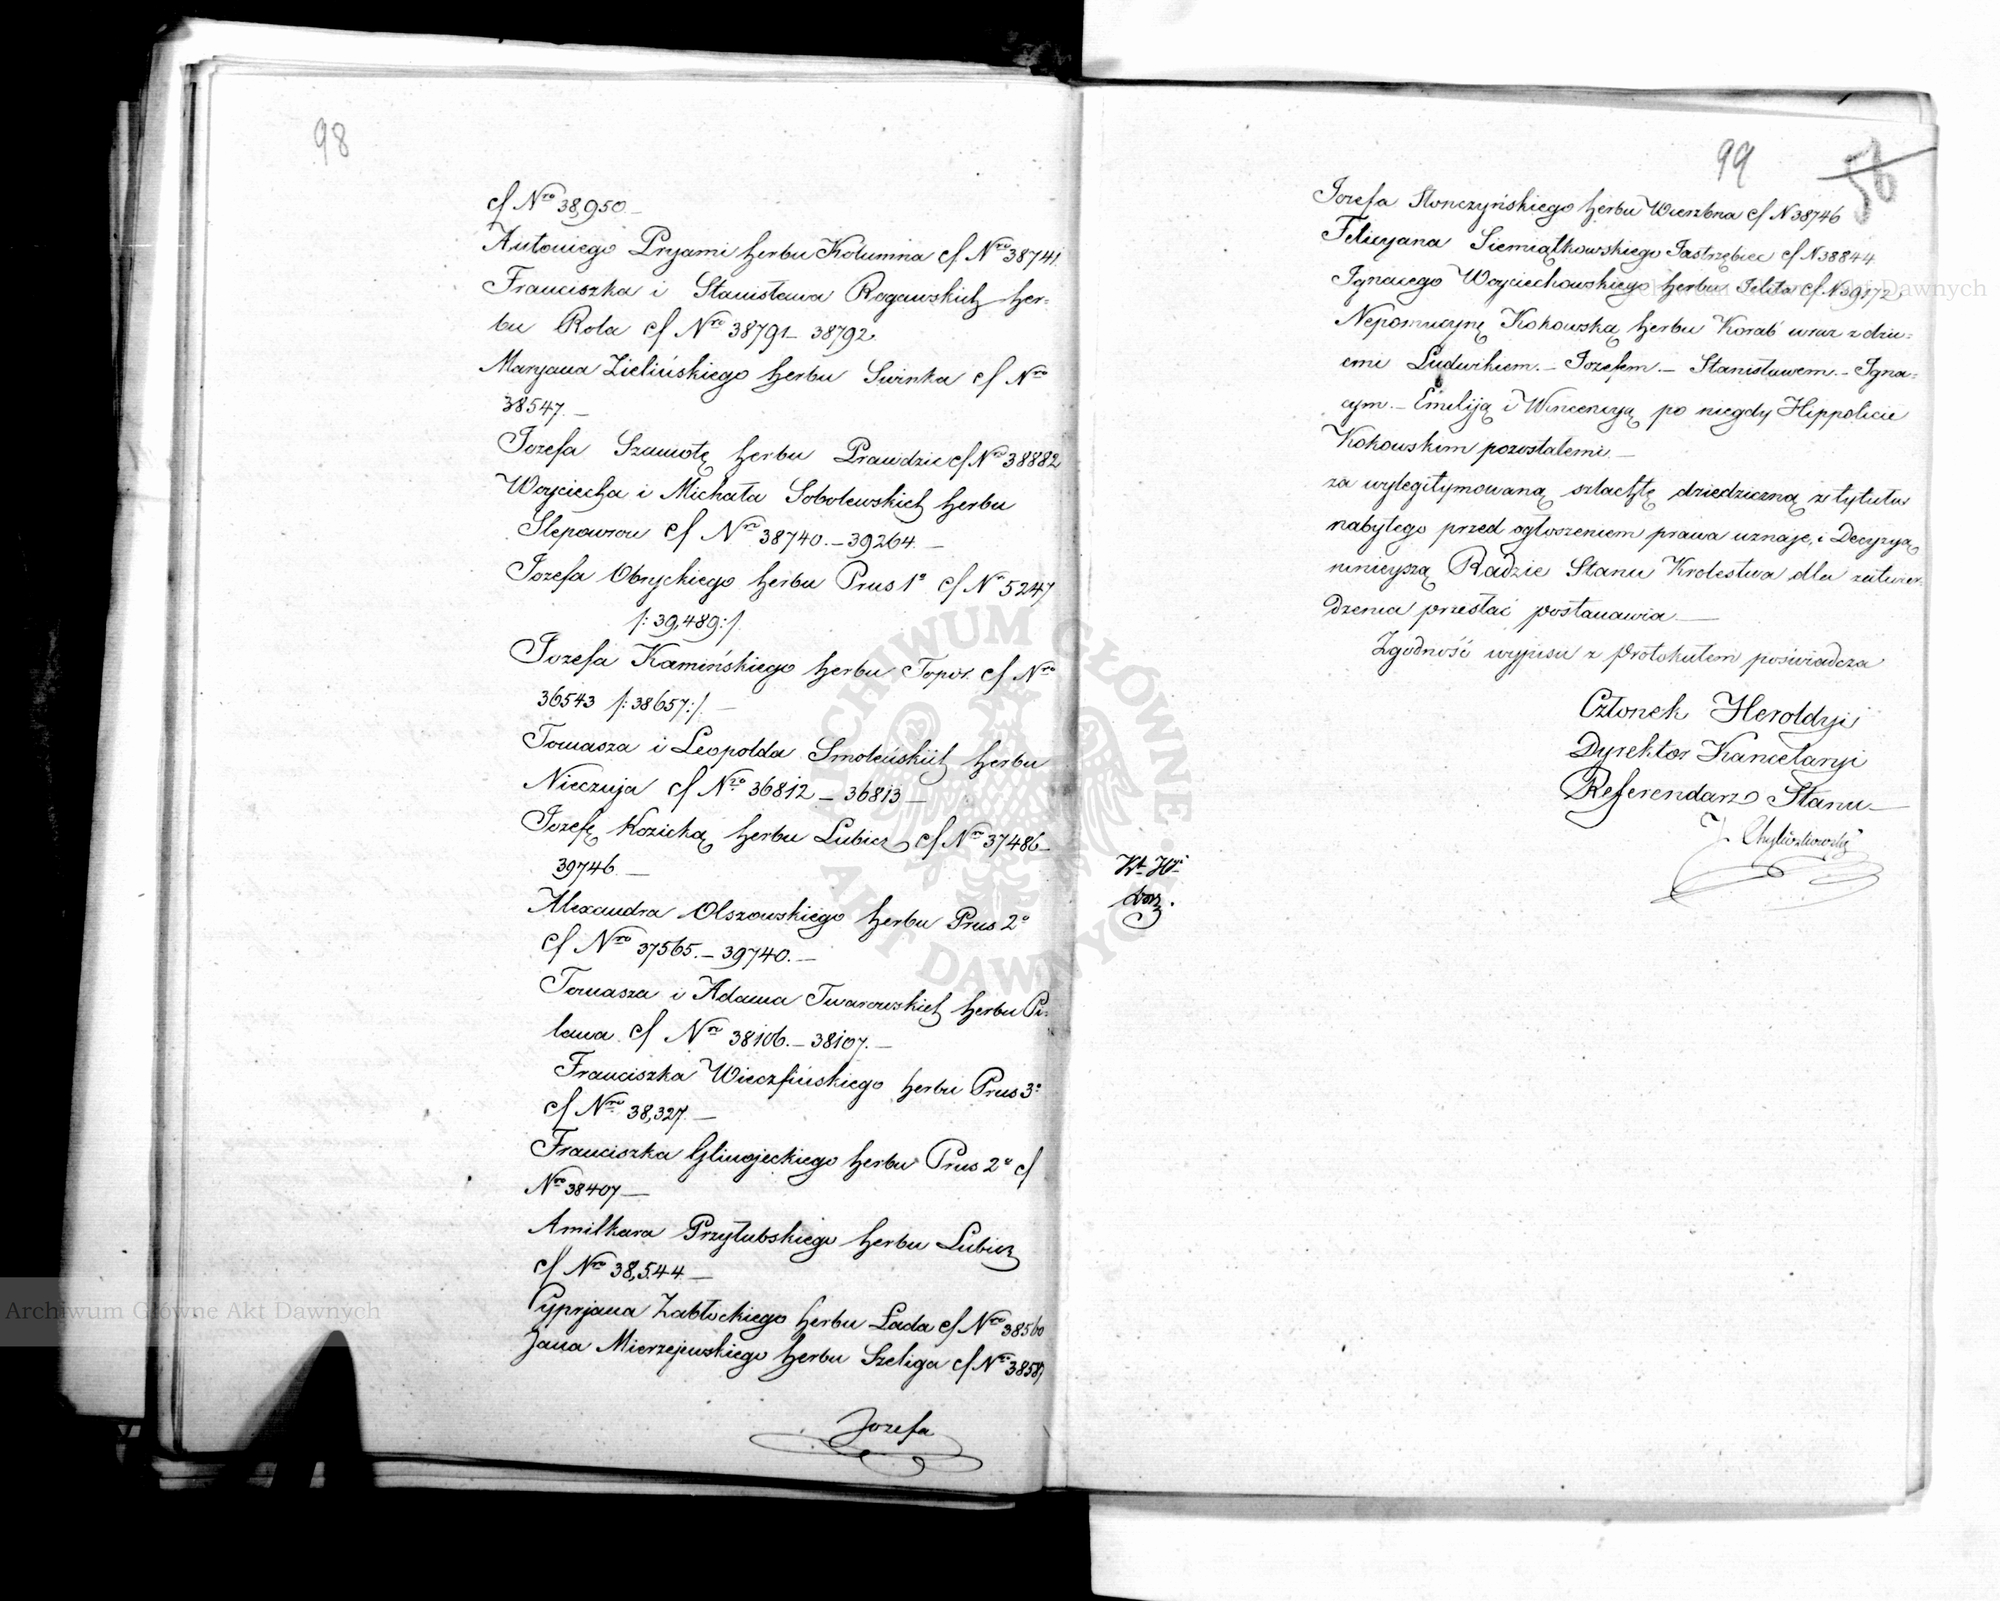 98
cf Nro 38,950 –
Antoniego Pryami herbu Kolumna cf Nro 38741.
Franciszka i Stanisława Rogawskich her-
bu Rola cf Nro 38791 – 38792
Maryana Zielińskiego herbu Swinka cf Nro
38547. –
Jozefa Szamotę herbu Prawdzic cf Nro 38882
Woyciecha i Michała Sobolewskich herbu
Slepowron cf Nro 38740. – 39264. –
Jozefa Obryckiego herbu Prus 1o cf No 5247
/: 39,489 :/
Jozefa Kamińskiego herbu Topor cf Nro
36543 /: 38657 :/. –
Tomasza i Leopolda Smoleńskich herbu
Nieczuja cf Nro 36812 – 36813 –
Jozefę Kozicką herbu Lubicz cf Nro 37486 –
39746. –
Alexandra Olszowskiego herbu Prus 2o
cf Nro 37565. – 39740. –
Tomasza i Adama Twarowskich herbu Pi-
lawa cf Nro 38106. – 38107. –
Franciszka Wieczfińskiego herbu Prus 3o
cf Nro 38,327. –
Franciszka Glinojeckiego herbu Prus 2o cf
Nro 38407 –
Amilkara Przyłubskiego herbu Lubicz
cf Nro 38,544 –
Cypryana Zabłockiego herbu Łada cf Nro 38560
Jana Mierzejewskiego herbu Szeliga cf Nro 3858
Jozefa
99
56
Jozefa Słonczyńskiego herbu Wierzbna cf N 38746
Felicyana Siemiątkowskiego Jastrzębiec cf N 38844
Ignacego Woyciechowskiego herbu Jelita cf N 39172
Nepomucynę Kokowską herbu Korab' wraz z dzie-
cmi Ludwikiem. – Jozefem. – Stanisławem. – Igna-
cym. – Emiliją i Wincencyą po niegdy Hippolicie
Kokowskim pozostałemi. –
za wylegitymowaną szlachtę dziedziczną z tytułu
nabytego przed ogłoszeniem prawa uznaje, i Decyzyą
ninieyszą Radzie Stanu Krolestwa dla zatwier-
dzenia przesłać postanawia –
Zgodność wypisu z Protokułem poświadcza
Członek Heroldyi
Dyrektor Kancelaryi
Referendarz Stanu –
Archiwum Główne Akt Dawnych
Archiwum Główne Akt Dawnych
ARCHIWUM GŁÓWNE AKT DAWNYCH